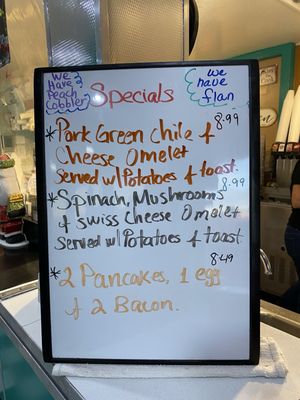 We
Have
Peach
Cobbler
Specials
We
have
flan
*Pork Green Chile &
Cheese Omelet 8.99
Served w/Potatoes & toast.
*Spinach, Mushrooms 8.99
& Swiss Cheese Omelet
Served w/ Potatoes & toast
*2 Pancakes, 1 egg 8.49
& 2 Bacon.